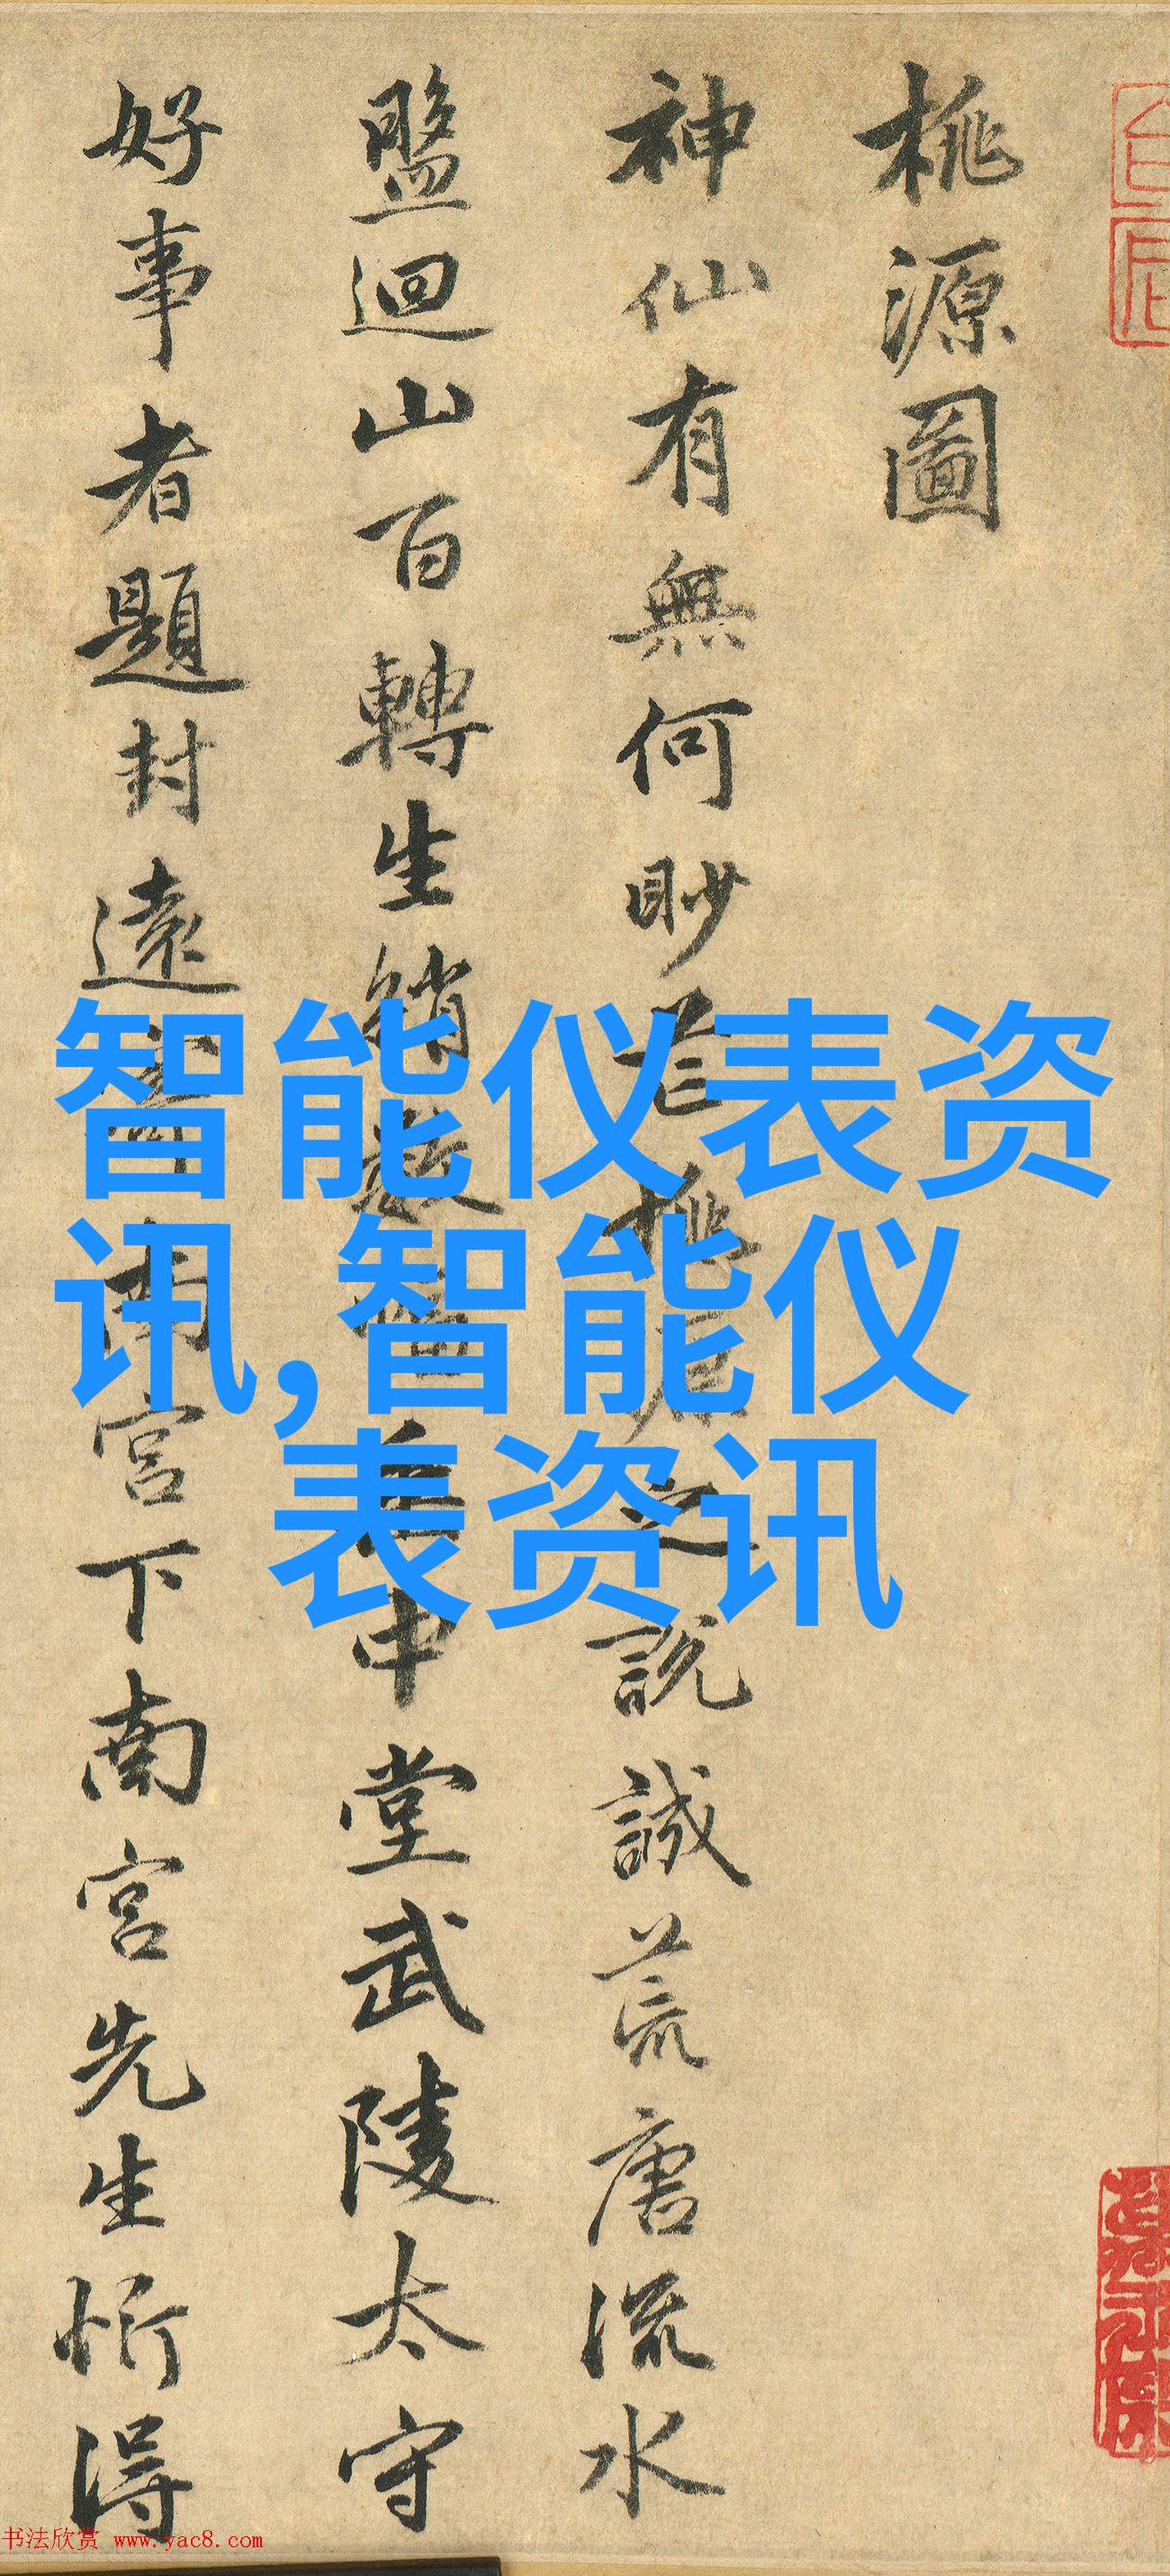 桃源圖
神仙有無何眇芒桃源之說誠荒唐流水
盤迴山百轉生綃數幅垂中堂武陵太守
好事者題封遠寄南宮下南宮先生忻得
智能仪表资
讯,智能仪
表资讯
书法欣赏 www.yac8.com